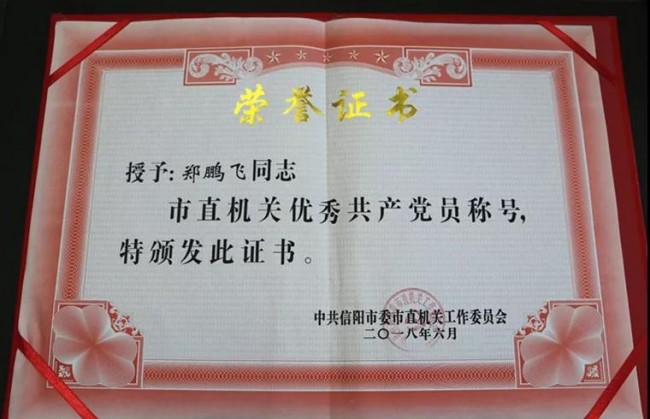 荣誉证书
授予:郑鹏飞同志
市直机关优秀共产党员称号,
特颁发此证书。
中共信阳市委市直机关工作委员会
二〇一八年六月